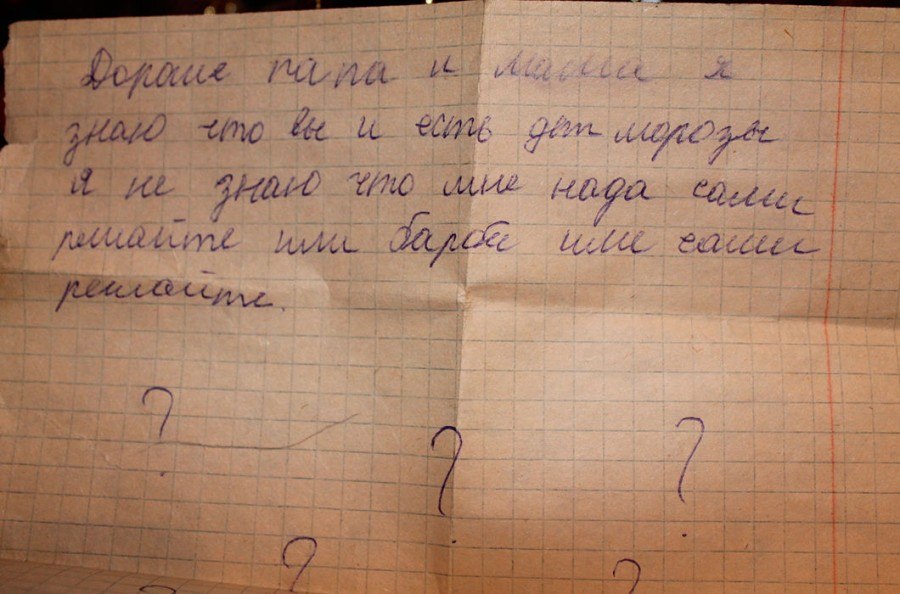 Дорание папа и мама я
знаю что вы и есть дет морозы
я не знаю что мне нада сами
решайте или барби или сами
решайте.
? ? ?
? ?